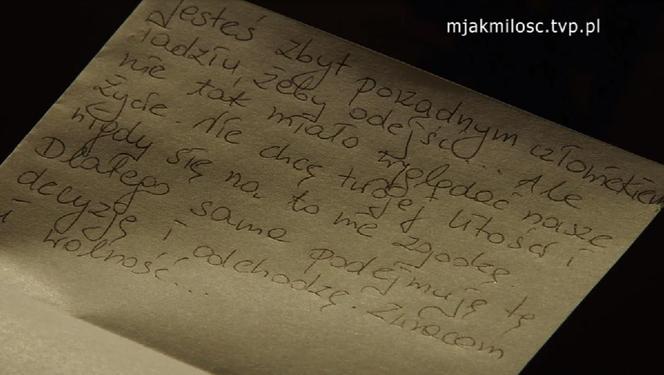 mjakmilosc.tvp.pl
Jesteś zbyt porządnym człowiekiem
Tadziu, żeby odejść... Ale
nie tak miało wyglądać nasze
życie. Nie chcę twojej litości i
nigdy się na to nie zgodzę.
Dlatego sama podejmuję tę
decyzję i odchodzę. Zwracam
i wolność...